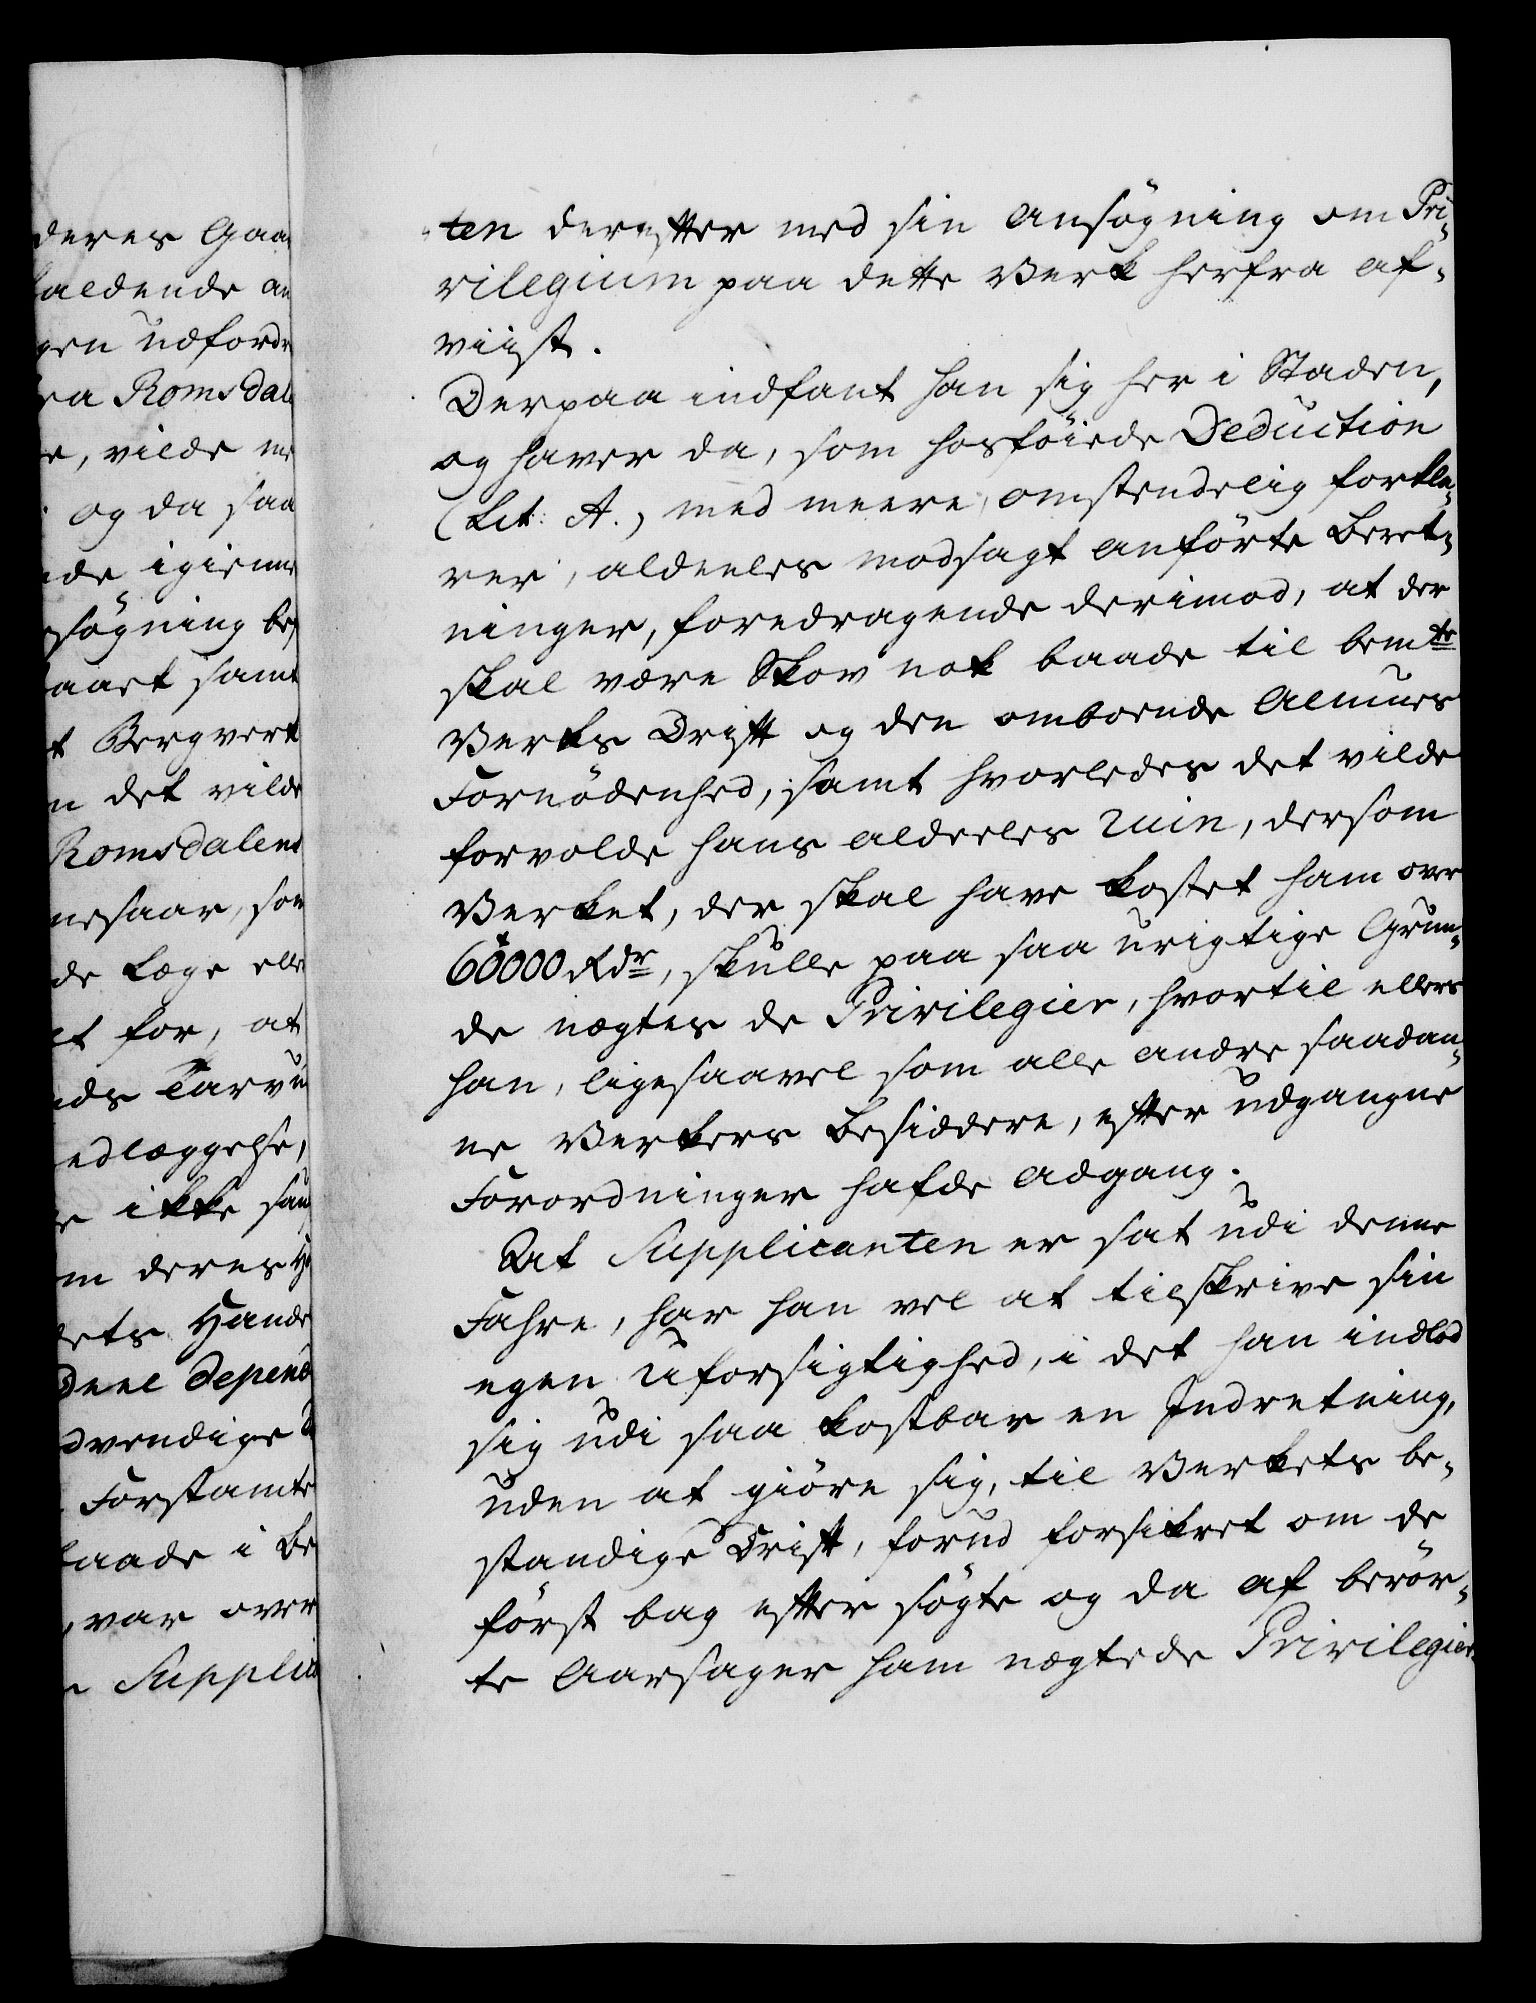 deres Gaa
faldende an
gen udfordr
ra Romsdal
e, vilde me
og da saa
de igienne
søgning bes
aaet samt
t Bergverk
n det vilde
Romsdalens
nesaar, som
de Læge elle
et for, at
ds Tarvu
edlæggelse,
e ikke saa
m deres H
ets Hande
deel depend
dvendige
Forstamte
aade i Be
, var over
n Supplica
ten derefter med sin Ansøgning om Pri-
vilegium paa dette Verk herfra af-
viist.
Derpaa indfant han sig her i Staden,
og haver da, som hosføiede Deduction
(Lit: A., med meere, omstendelig forkla-
rer, aldeeles modsagt anførte Beret-
ninger, foredragende derimod, at der
skal være Skov nok baade til bemte
Verks Drift og den omboende Almues
Fornødenhed, samt hvorledes det vilde
forvolde hans aldeeles Ruin, dersom
Verket, der skal have kostet ham over
60000 Rdr, skulle paa saa urigtige Grun-
de nægtes de Privilegier, hvortil ellers
han, ligesaavel som alle andre saadan-
ne Verkers Besiddere, efter udgangne
Forordninger hafde Adgang.
At Supplicanten er sat udi denne
Fahre, har han vel at tilskrive sin
egen Uforsigtighed, i det han indlod
sig udi saa kostbar en Indretning,
uden at giøre sig, til Verkets be-
standige Drift, forud forsikret om de
først bag efter søgte og da af berør-
te Aarsager ham nægtede Privilegier.